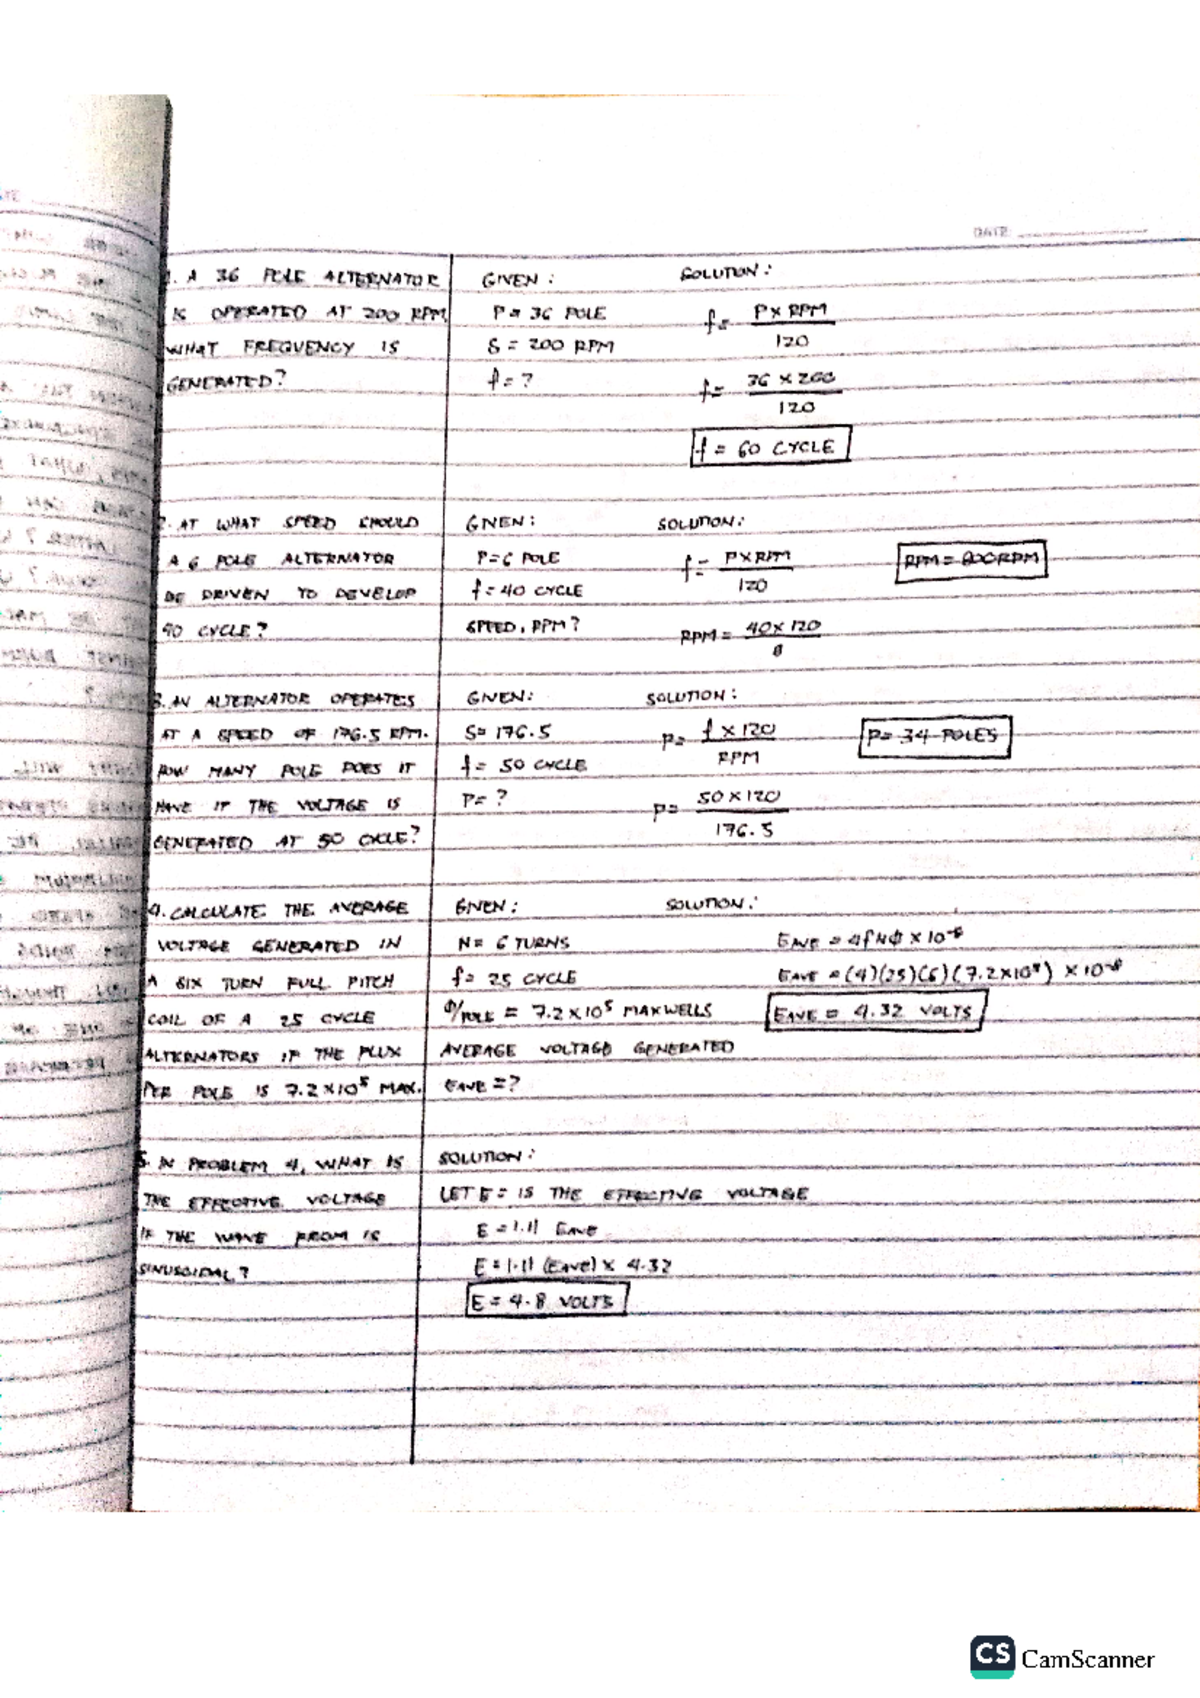 DATE:
1. A 36 POLE ALTERNATOR
IS OPERATED AT 200 RPM
WHAT FREQUENCY IS
GENERATED?
GIVEN:
P = 36 POLE
S = 200 RPM
f = ?
SOLUTION:
f = P X RPM / 120
f = 36 X 200 / 120
f = 60 CYCLE
2. AT WHAT SPEED SHOULD
A 6 POLE ALTERNATOR
BE DRIVEN TO DEVELOP
40 CYCLE?
GIVEN:
P = 6 POLE
f = 40 CYCLE
SPEED, RPM?
SOLUTION:
f = P X RPM / 120
RPM = 40 X 120 /
RPM = 800 RPM
3. AN ALTERNATOR OPERATES
AT A SPEED OF 176.5 RPM.
HOW MANY POLE DOES IT
HAVE IF THE VOLTAGE IS
GENERATED AT 50 CYCLE?
GIVEN:
S = 176.5
f = 50 CYCLE
P = ?
SOLUTION:
P = f X 120 / RPM
P = 50 X 120 / 176.5
P = 34 POLES
4. CALCULATE THE AVERAGE
VOLTAGE GENERATED IN
A SIX TURN FULL PITCH
COIL OF A 25 CYCLE
ALTERNATORS IF THE FLUX
PER POLE IS 7.2 X 10⁵ MAX.
GIVEN:
N = 6 TURNS
f = 25 CYCLE
Φ/POLE = 7.2 X 10⁵ MAXWELLS
AVERAGE VOLTAGE GENERATED
EAVE = ?
SOLUTION:
EAVE = 4fNΦ X 10⁻⁸
EAVE = (4)(25)(6)(7.2X10⁵) X 10⁻⁸
EAVE = 4.32 VOLTS
5. IN PROBLEM 4, WHAT IS
THE EFFECTIVE VOLTAGE
IF THE WAVE FROM IS
SINUSOIDAL?
SOLUTION:
LET E = IS THE EFFECTIVE VOLTAGE
E = 1.11 EAVE
E = 1.11 (EAVE) X 4.32
E = 4.8 VOLTS
CS CamScanner